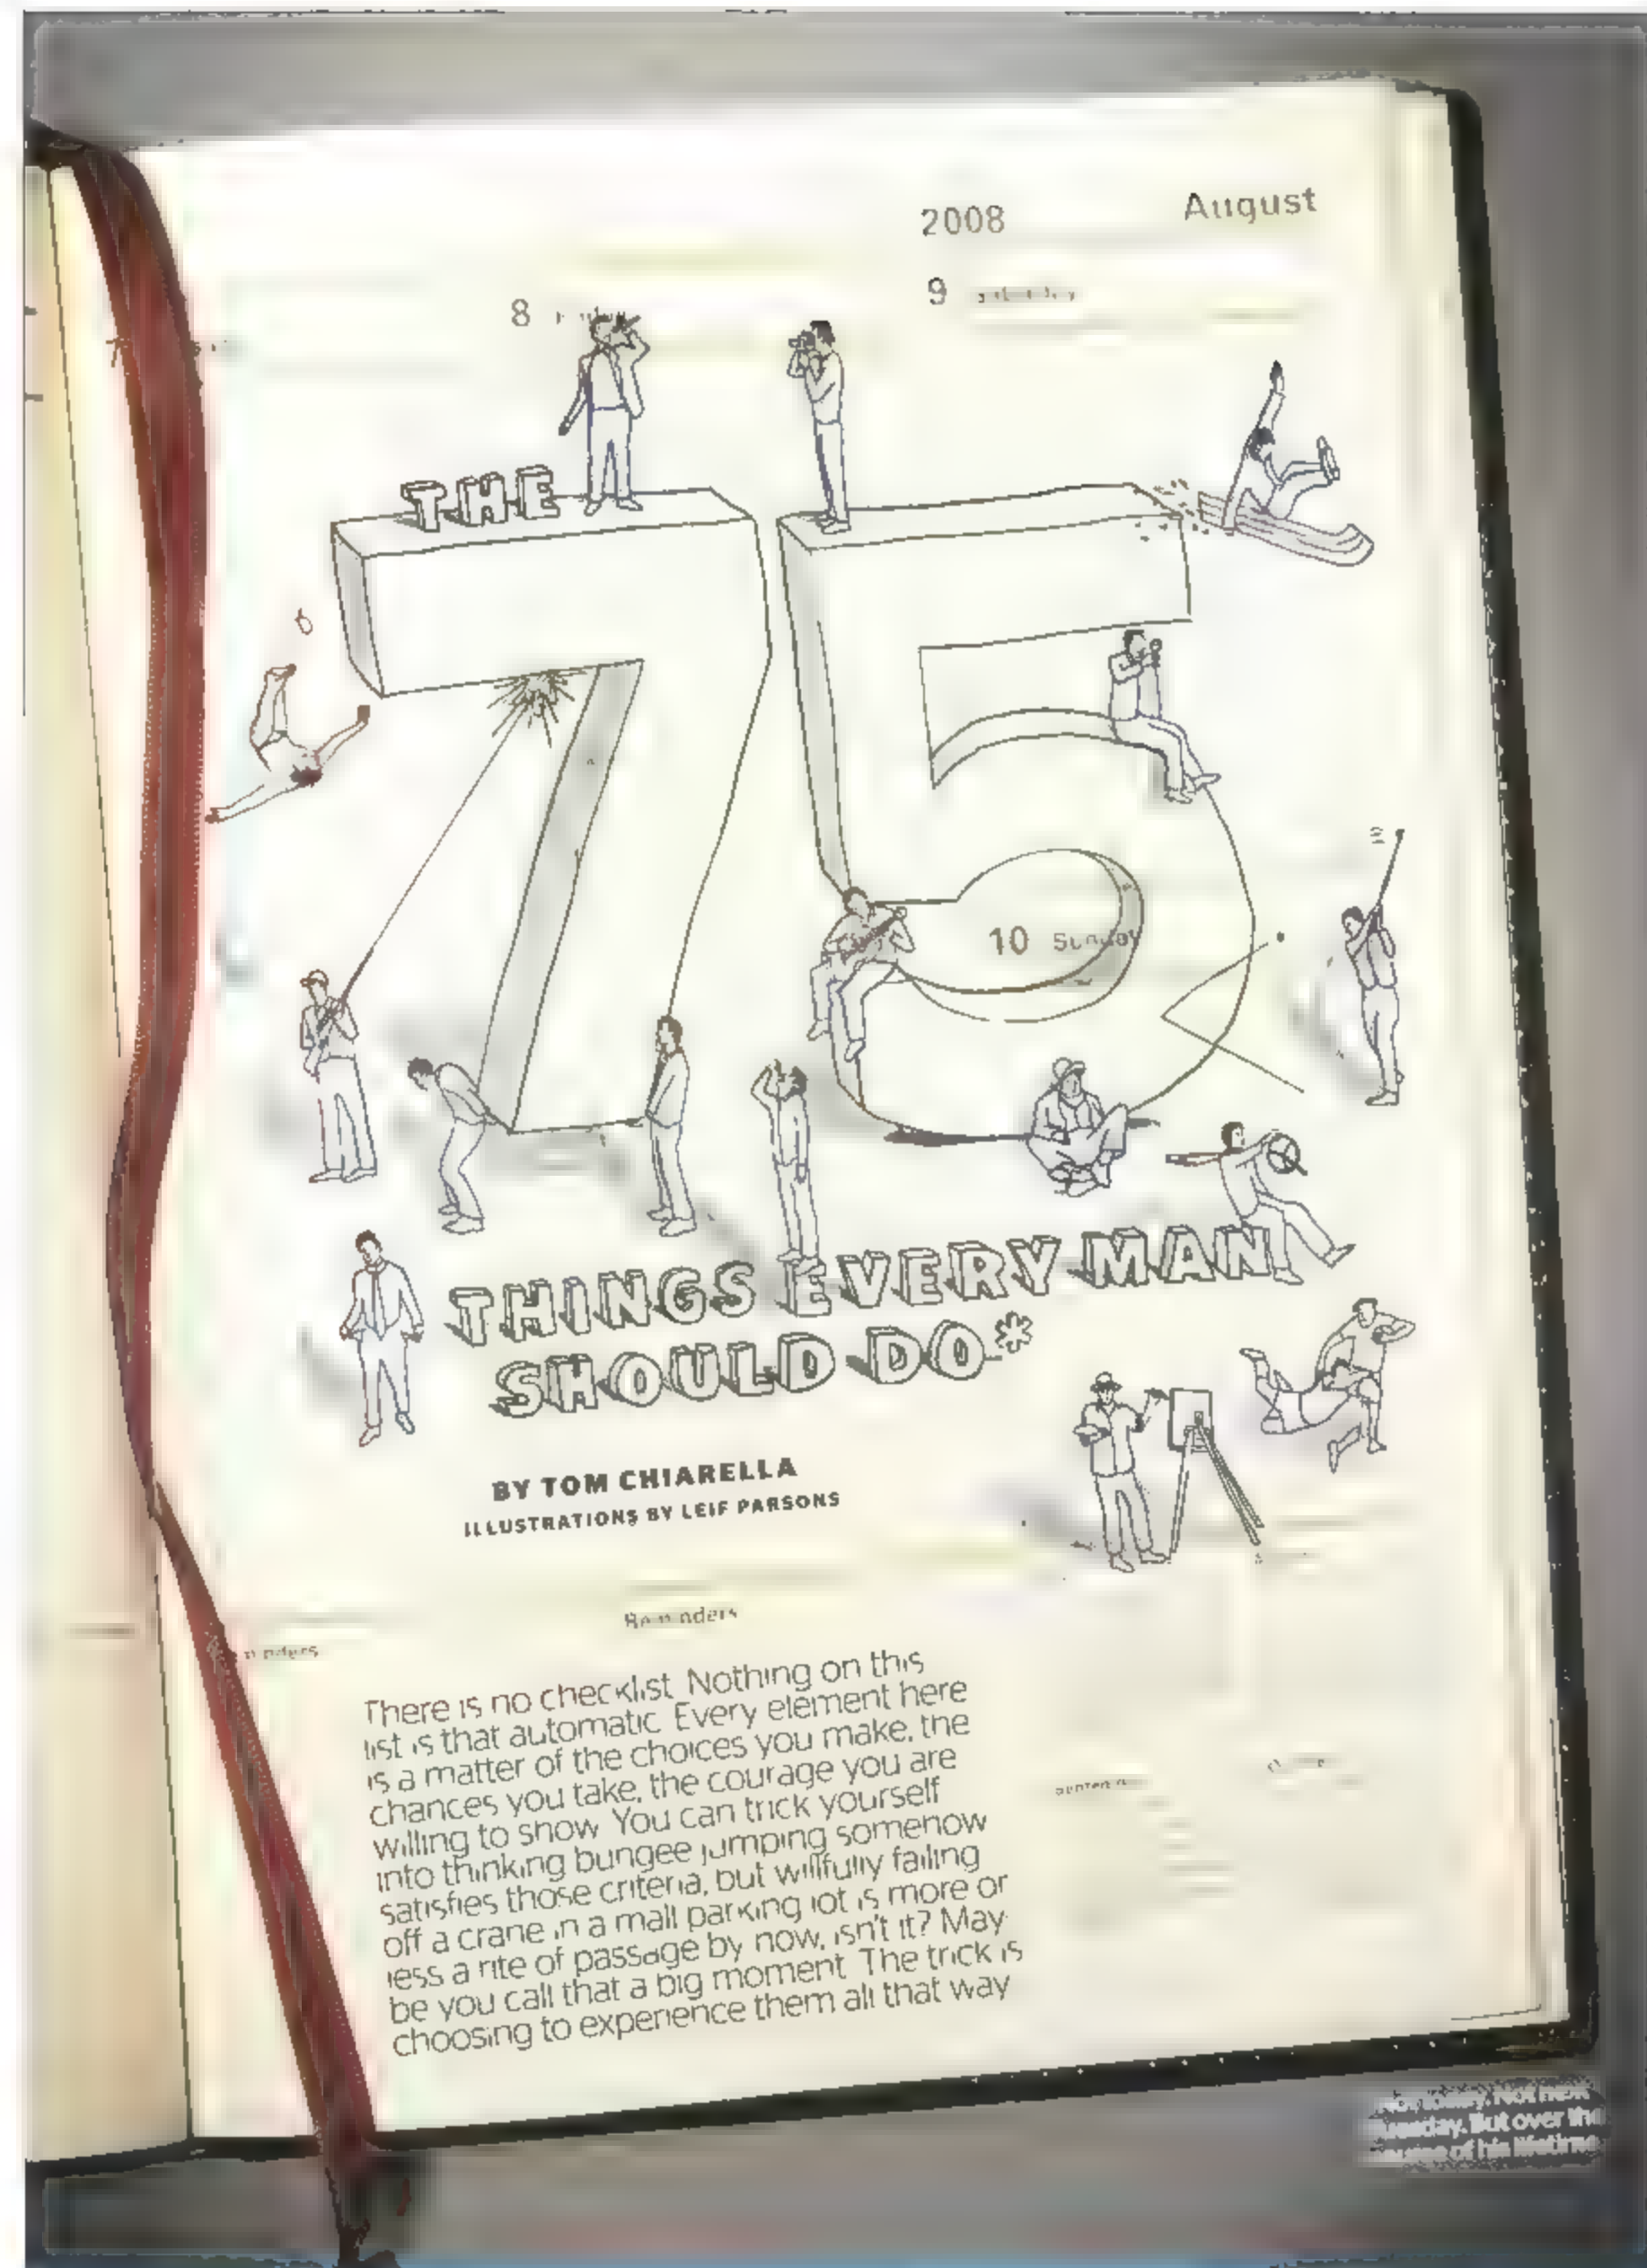 2008 August
8
9
THE
75
10 Sunday
THINGS EVERY MAN
SHOULD DO*
BY TOM CHIARELLA
ILLUSTRATIONS BY LEIF PARSONS
Reminders
There is no checklist Nothing on this
list is that automatic Every element here
is a matter of the choices you make, the
chances you take, the courage you are
willing to show You can trick yourself
into thinking bungee jumping somehow
satisfies those criteria, but willfully falling
off a crane in a mall parking lot is more or
less a rite of passage by now, isn't it? May
be you call that a big moment The trick is
choosing to experience them all that way
But over the
of his lifetime